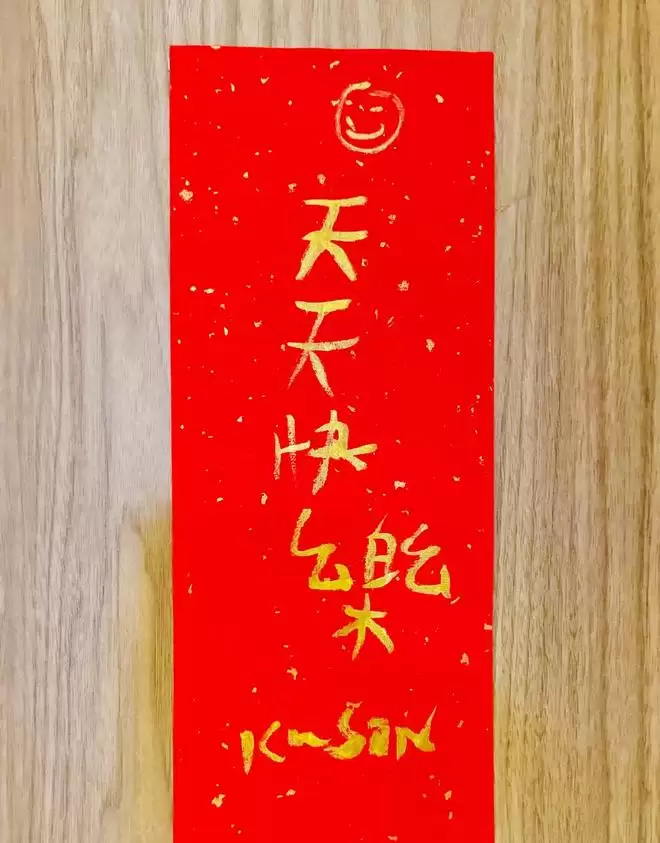 天天快樂